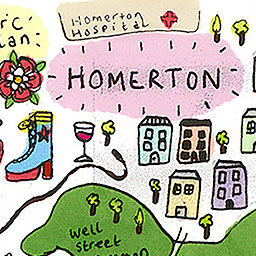 Homerton
Hospital
HOMERTON
Well
Street